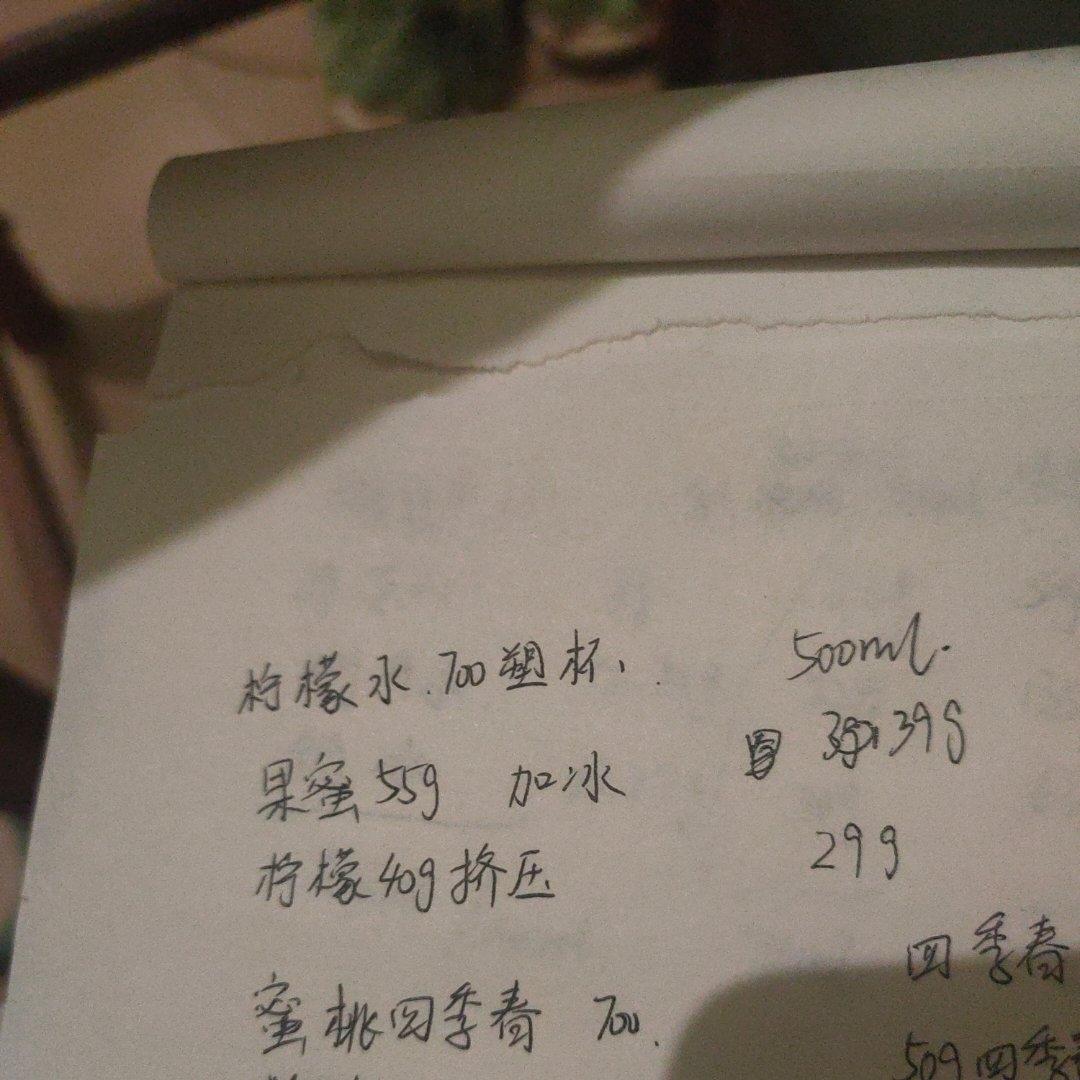 柠檬水.700塑杯、 500ml.
果蜜55g 加冰 39g
柠檬40g挤压 29g
四季春
蜜桃四季春 700.
50g四季春